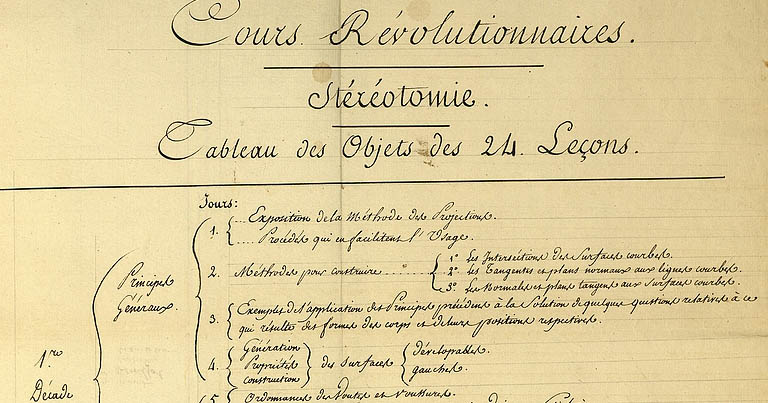 Cours Révolutionnaires.
Stéréotomie.
Tableau des Objets des 24. Leçons.
Jours:
1re
Décade
Principes
Généraux.
1. Exposition de la Méthode des Projections.
Procédés qui en facilitent l'Usage.
2. Méthodes pour construire
1° Les Intersections des Surfaces courbes.
2° Les Tangentes et plans normaux aux lignes courbes.
3° Les Normales et plans tangens aux Surfaces courbes.
3. Exemples de l'application des Principes précédens à la Solution de quelques questions relatives à ce
qui résulte des formes des corps et de leurs positions respectives.
4. Génération
Propriétés
construction
des surfaces
développables.
gauches.
5. Ordonnances des Voutes et voussures.